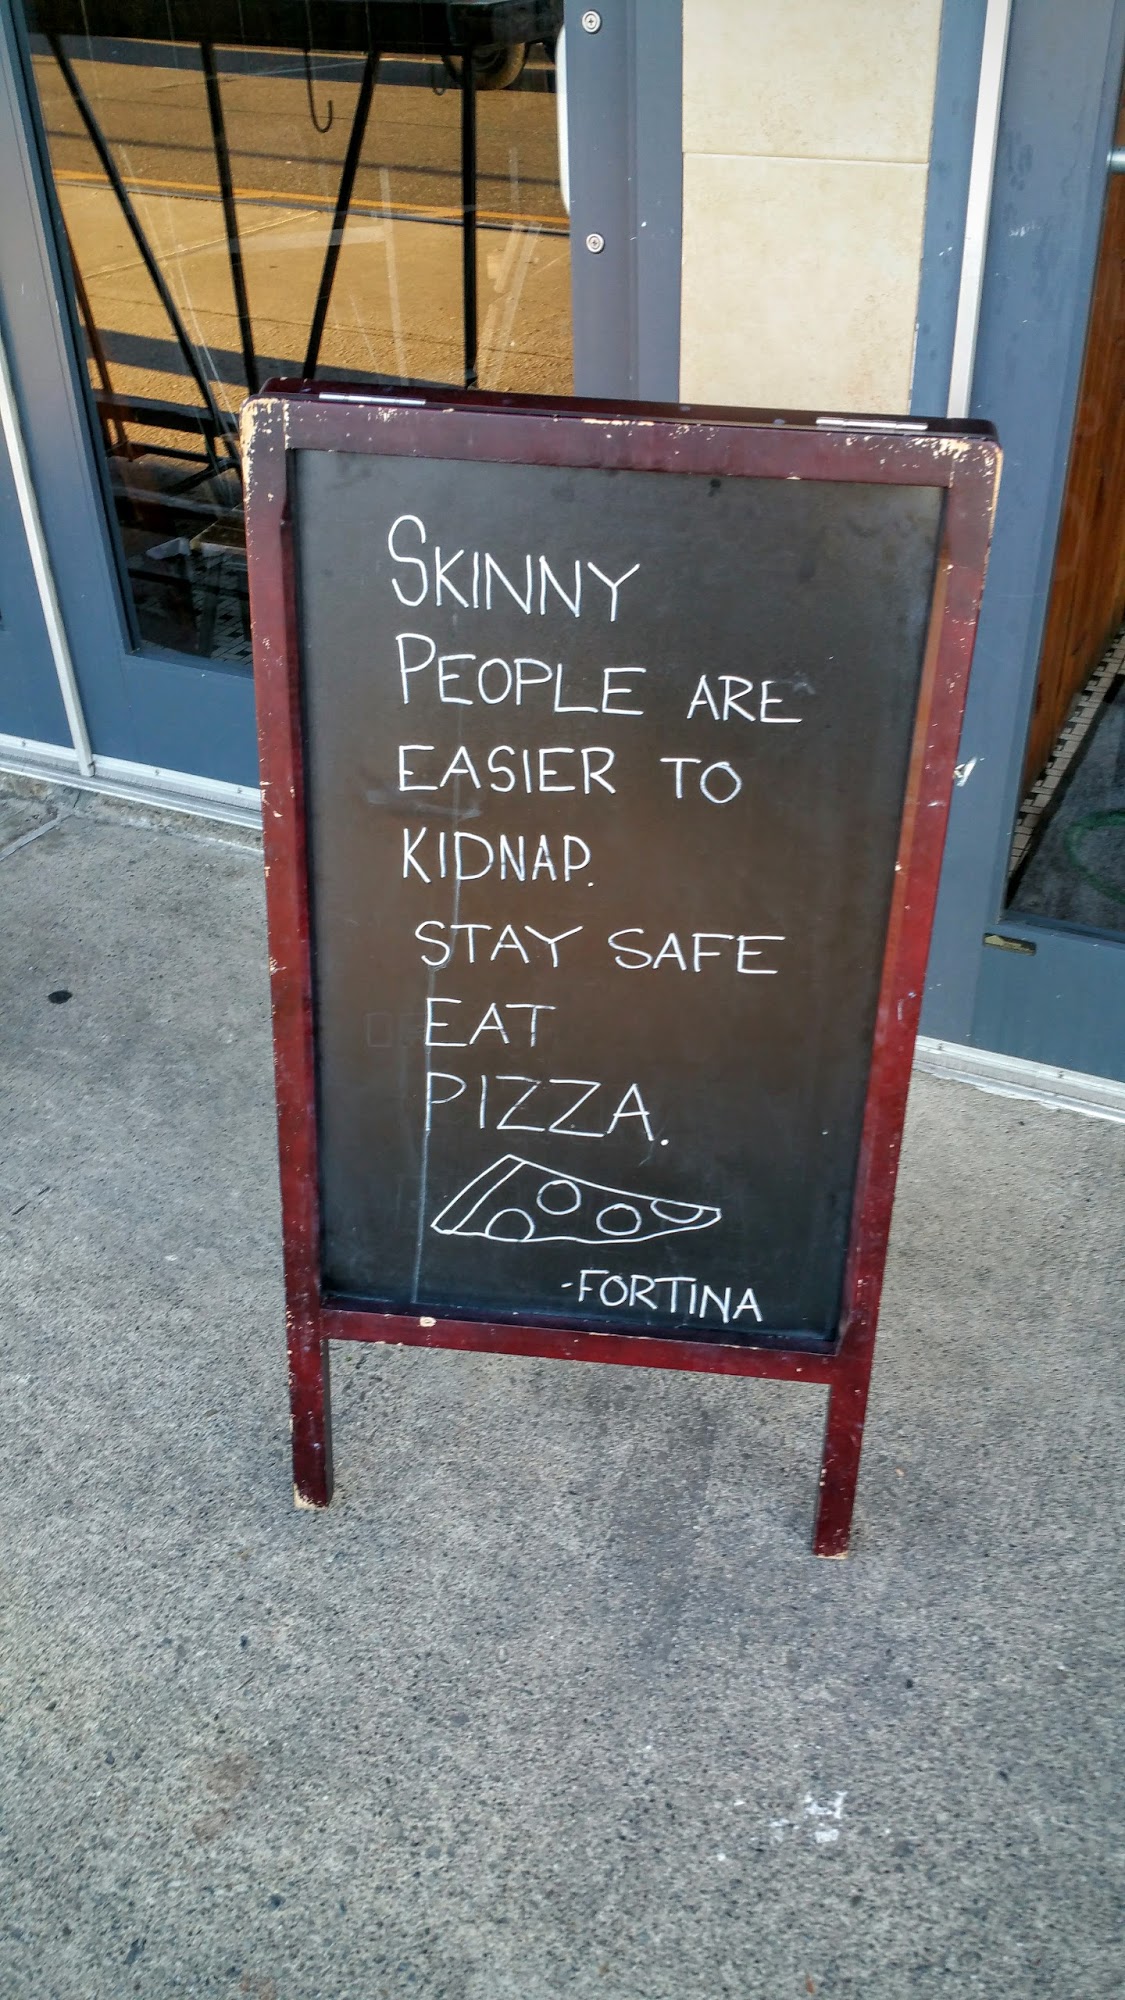 SKINNY
PEOPLE ARE
EASIER TO
KIDNAP.
STAY SAFE
EAT
PIZZA.
-FORTINA